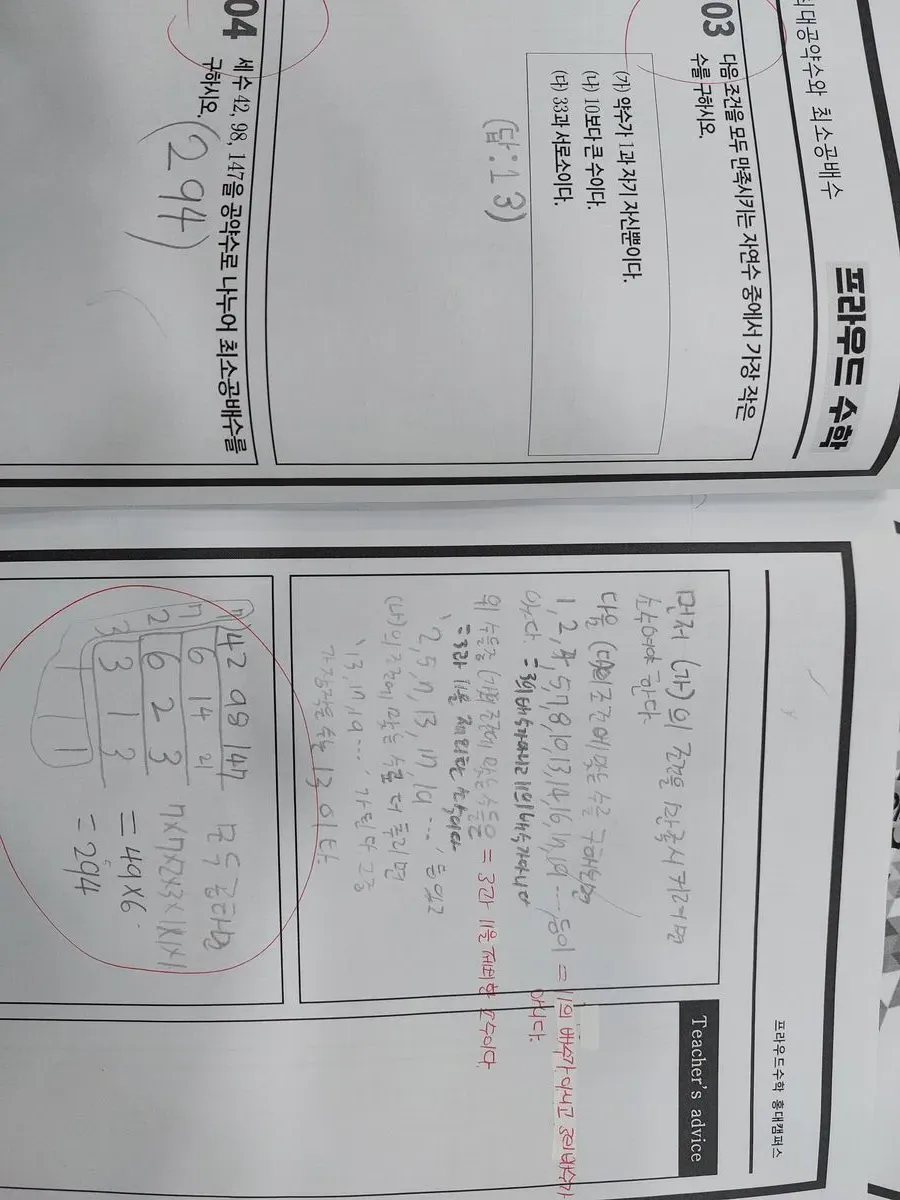 최대공약수와 최소공배수
프라우드 수학
03 다음 조건을 모두 만족시키는 자연수 중에서 가장 작은
수를 구하시오.
(가) 약수가 1과 자기 자신뿐이다.
(나) 10보다 큰 수이다.
(다) 33과 서로소이다.
(답:13)
04 세 수 42, 98, 147을 공약수로 나누어 최소공배수를
구하시오.
(294)
프라우드수학 홍대캠퍼스
Teacher's advice
먼저 (가)의 조건을 만족시키려면
소수여야 한다
다음 (다)의 조건에 맞는 수를 구해보면
1, 2, 4, 5, 7, 8, 10, 13, 14, 16, 17, 19 … 등이
있다. =3의 배수가 아니고 11의 배수가 아니다
= 11의 배수가 아니고 3의 배수가
아니다.
위 수들중 (가)조건에 맞는 수들은
= 3과 11을 제외한 소수이다.
2, 5, 7, 13, 17, 19 …, 등있고
=3과 11을 제외한 소수이다
(나)의 조건에 맞는 수를 더 추리면
13, 17, 19 …, 가 된다 그중
가장작은수는 13 이다.
7 42 98 147
7 6 14 21
2 6 2 3
3 3 1 3
1 1 1
모두 곱하면
7×7×2×3×1×1×1
= 49×6
= 294